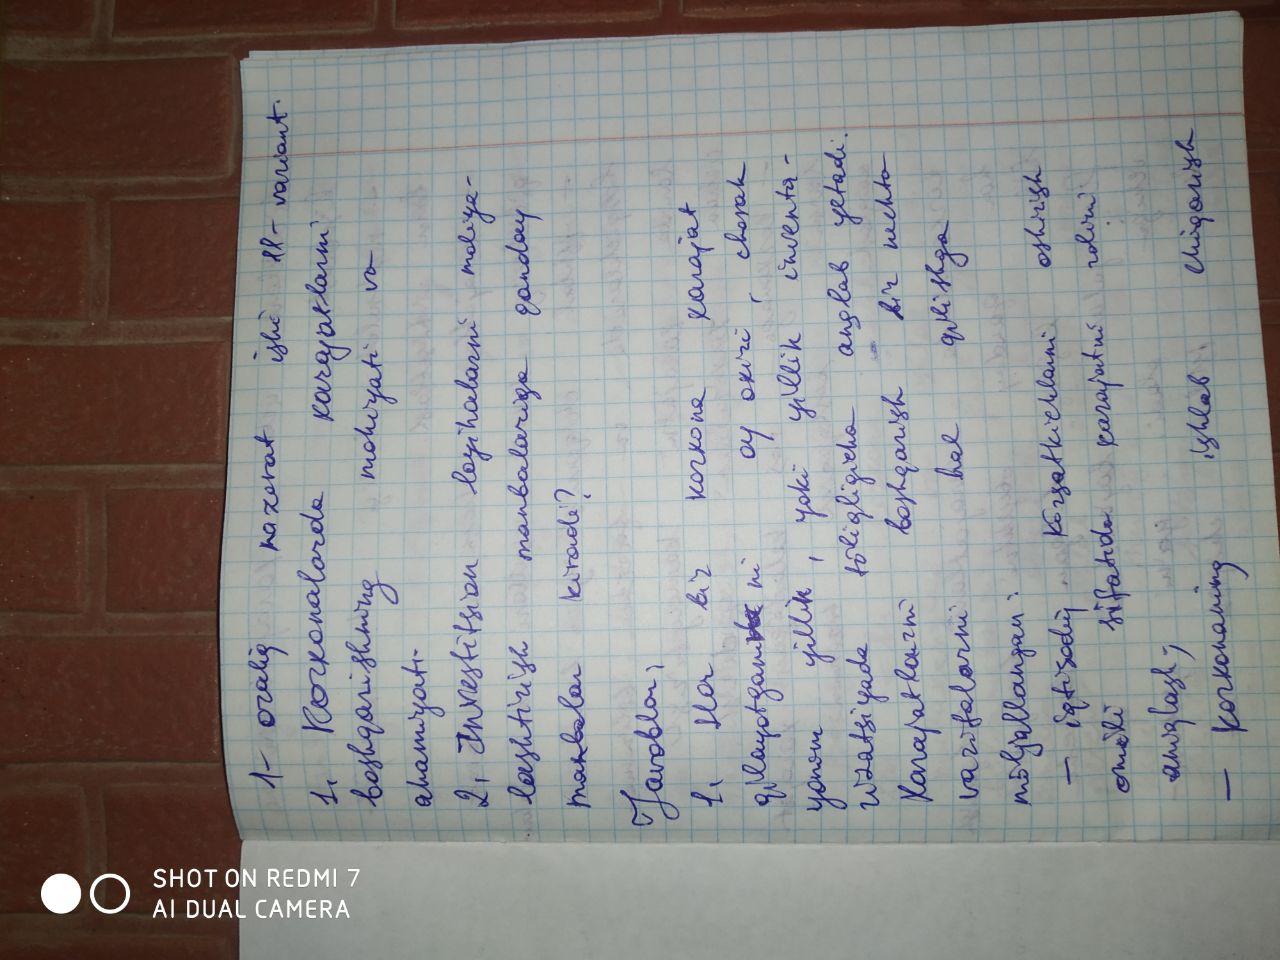 1- oraliq nazorat ishi 11- variant.
1. Korxonalarda xarajatlarni
boshqarishning mohiyati va
ahamiyati.
2. Investitsion loyihalarni moliya-
lashtirish manbalariga qanday
manbalar kiradi?
Javoblar;
1. Har bir korxona xarajat
qilayotganini oy oxiri, chorak
yarim yillik, yoki yillik inventa-
rizatsiyada to'liqligicha anglab yetadi.
Xarajatlarni boshqarish bir nechta
vazifalarni hal qilishga
mo'ljallangan;
— iqtisodiy ko'rsatkichlarni oshirish
omili sifatida xarajatni rolini
aniqlash;
— korxonaning ishlab chiqarish
SHOT ON REDMI 7
AI DUAL CAMERA